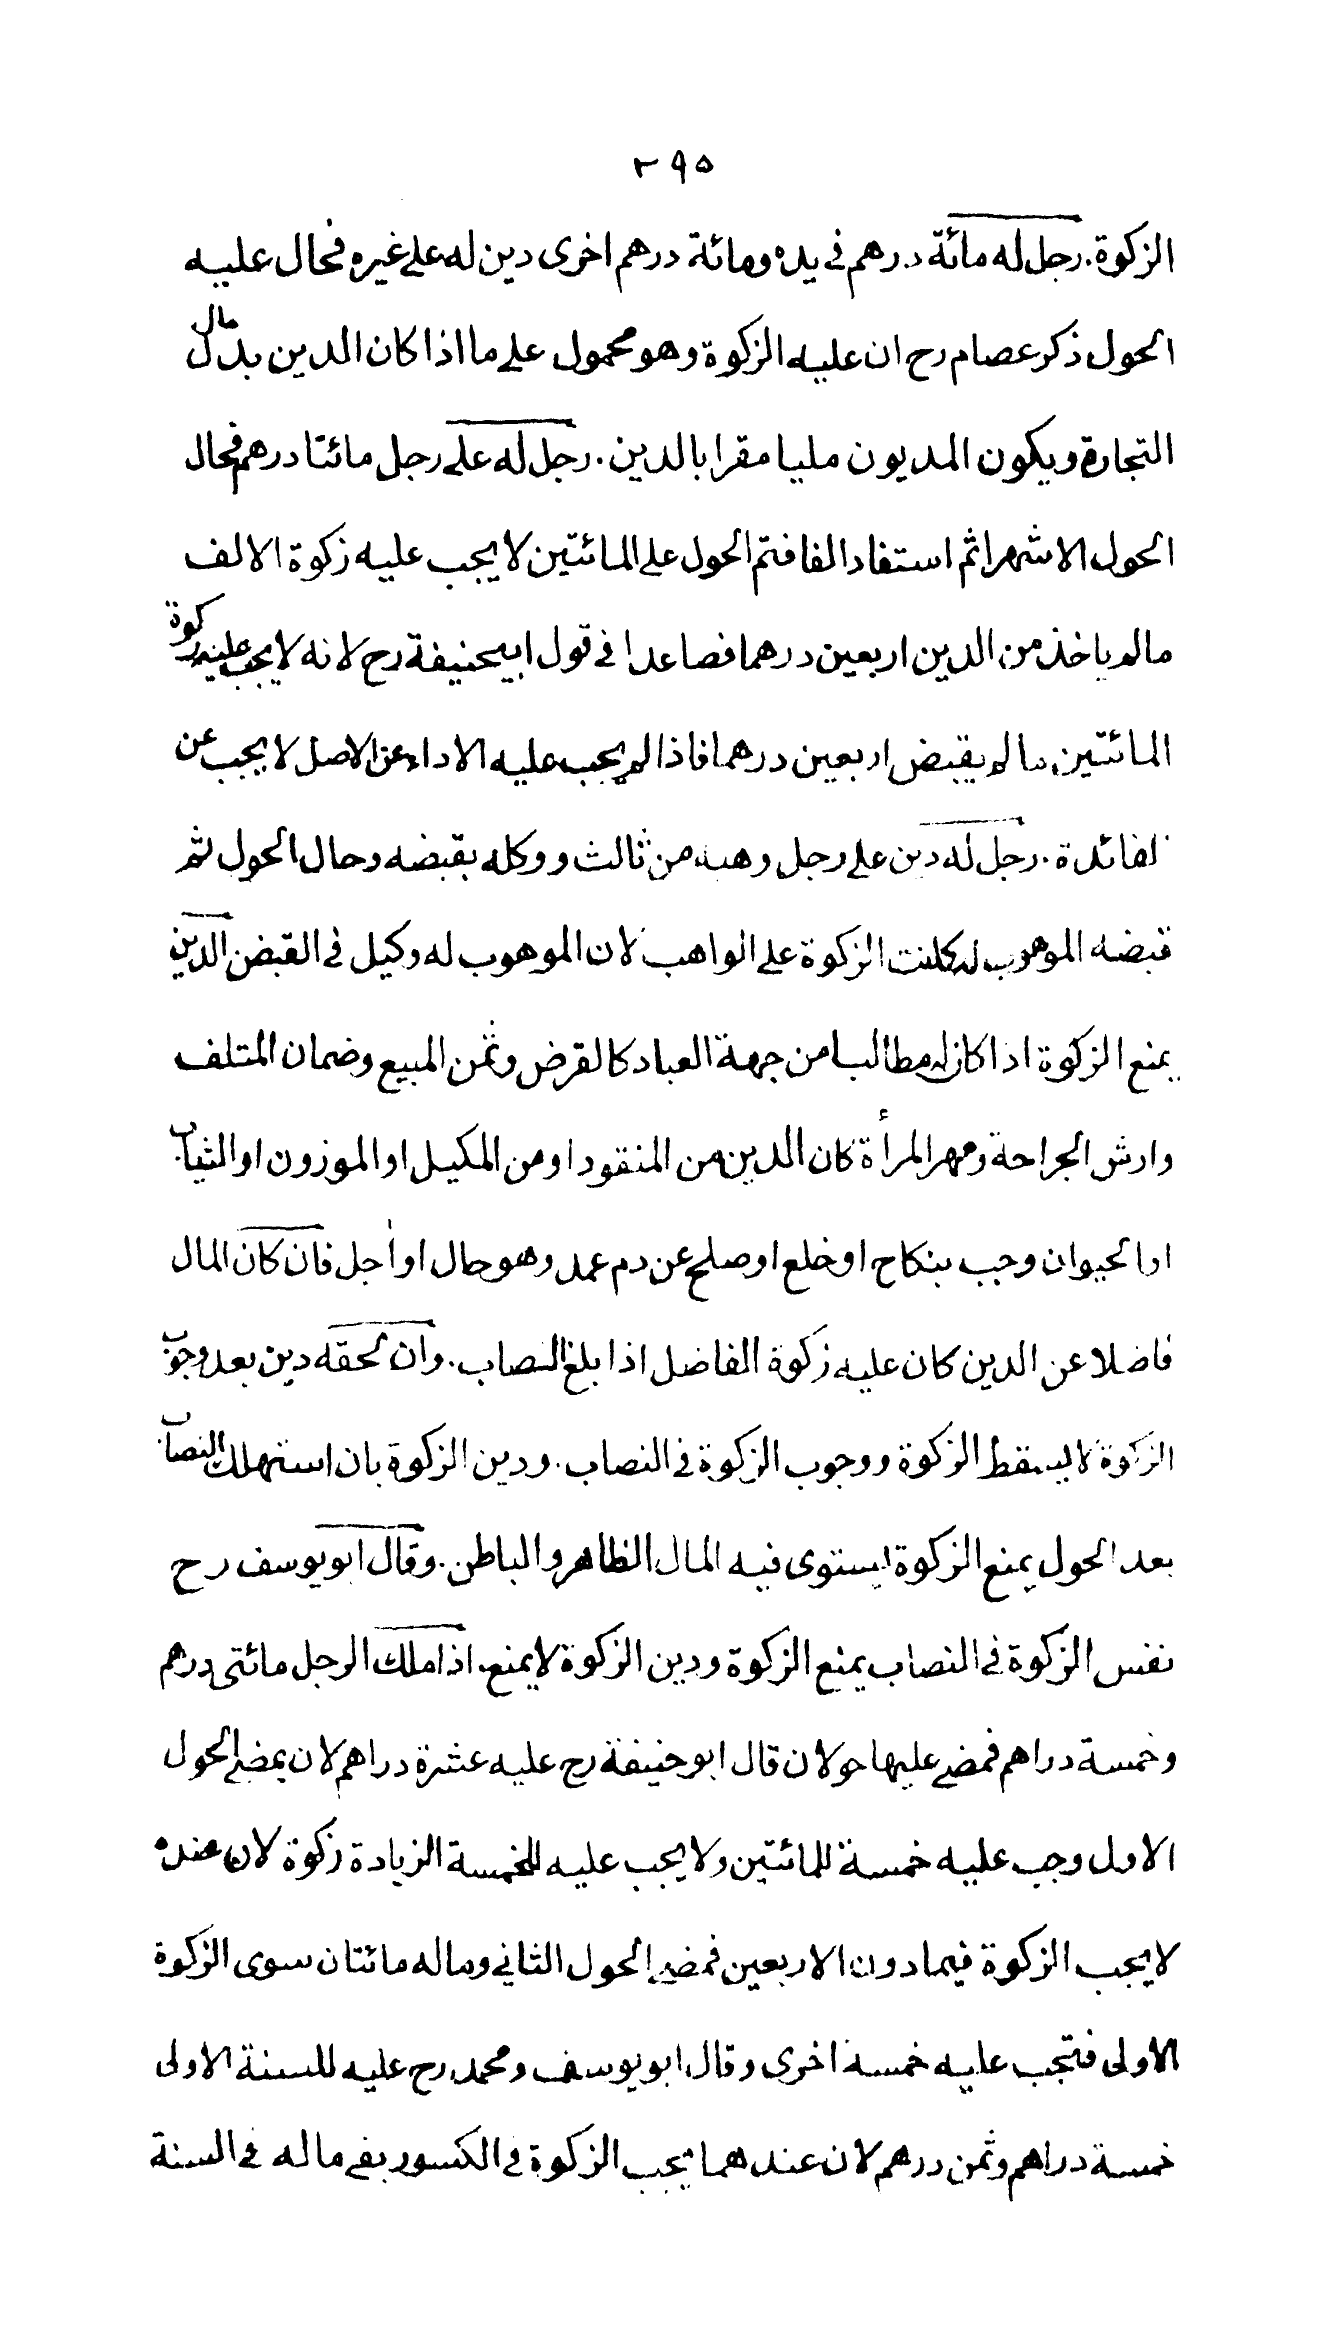 ٢٩٥
الزكوة. رجل له مائة درهم في يده ومائة درهم اخرى دين له على غيره فحال عليه
الحول ذكر عصام رح ان عليه الزكوة وهو محمول على ما اذا كان الدين بدل مال
التجارة ويكون المديون مليا مقرا بالدين. رجل له على رجل مائتا درهم فحال
الحول الا شهرا ثم استفاد الفا فتم الحول على المائتين لا يجب عليه زكوة الالف
مالم ياخذ من الدين اربعين درهما فصاعدا في قول ابيحنيفة رح لانه لا يجب عليه زكوة
المائتين مالم يقبض اربعين درهما فاذا لم يجب عليه الاداء عن الاصل لا يجب عن
الفائدة. رجل له دين على رجل وهبه من ثالث ووكله بقبضه وحال الحول ثم
قبضه الموهوب له كانت الزكوة على الواهب لان الموهوب له وكيل في القبض الدين
يمنع الزكوة اذا كان له مطالبا من جهة العباد كالقرض وثمن المبيع وضمان المتلف
وارش الجراحة ومهر المرأة كان الدين من المنقود او من المكيل او الموزون او الثياب
او الحيوان وجب بنكاح او خلع او صلح عن دم عمد وهو حال او أجل فان كان المال
فاضلا عن الدين كان عليه زكوة الفاضل اذا بلغ النصاب. وان لحقه دين بعد وجوب
الزكوة لا يسقط الزكوة ووجوب الزكوة في النصاب. ودين الزكوة بان استهلك النصاب
بعد الحول يمنع الزكوة يستوى فيه المال الظاهر والباطن. وقال ابو يوسف رح
نفس الزكوة في النصاب يمنع الزكوة ودين الزكوة لا يمنع. اذا ملك الرجل مائتى درهم
وخمسة دراهم فمضى عليها حولان قال ابو حنيفة رح عليه عشرة دراهم لان بمضى الحول
الاول وجب عليه خمسة للمائتين ولا يجب عليه للخمسة الزيادة زكوة لان عنده
لا يجب الزكوة فيما دون الاربعين فمضى الحول الثاني وماله مائتان سوى الزكوة
الاولى فتجب عليه خمسة اخرى وقال ابو يوسف ومحمد رح عليه للسنة الاولى
خمسة دراهم وثمن درهم لان عندهما يجب الزكوة في الكسور بقى ماله في السنة